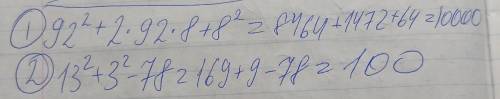 ① 92² + 2 · 92 · 8 + 8² = 8464 + 1472 + 64 = 10000
② 13² + 3² - 78 = 169 + 9 - 78 = 100